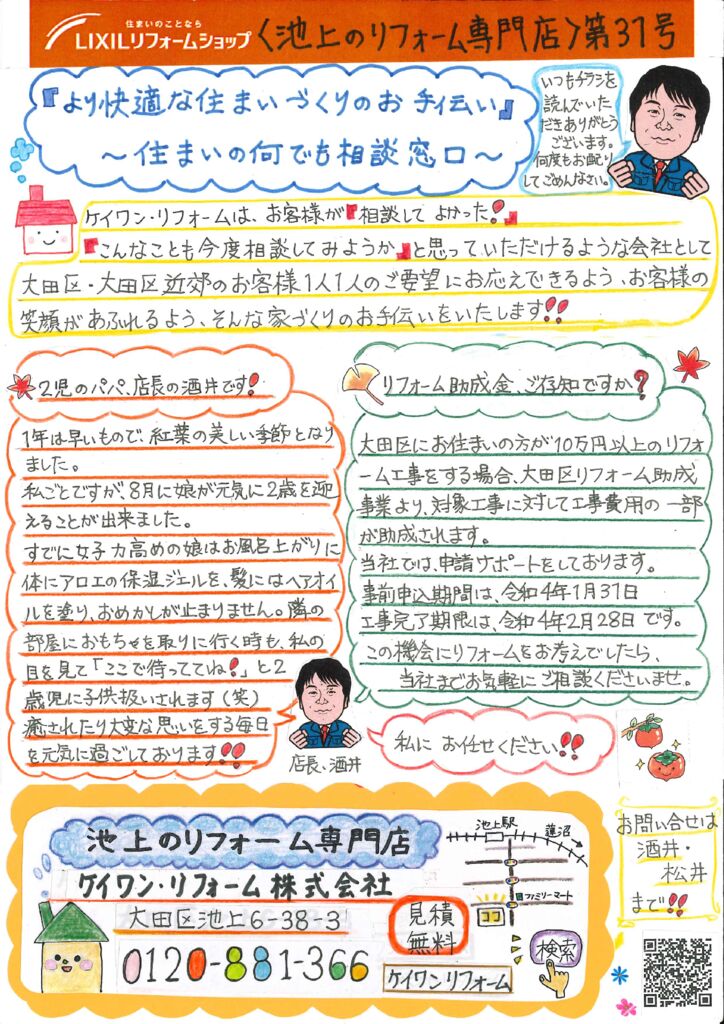 住まいのことなら
LIXILリフォームショップ 〈池上のリフォーム専門店〉第31号
『より快適な住まいづくりのお手伝い』
～住まいの何でも相談窓口～
いつもチラシを
読んでいた
だきありがとう
ございます。
何度もお配り
してごめんなさい。
ケイワン・リフォームは、お客様が『相談して よかった！』
『こんなことも今度相談してみようか』と思っていただけるような会社として
大田区・大田区近郊のお客様1人1人のご要望にお応えできるよう、お客様の
笑顔があふれるよう、そんな家づくりのお手伝いをいたします!!
2児のパパ、店長の酒井です！
1年は早いもので、紅葉の美しい季節となり
ました。
私ごとですが、8月に娘が元気に2歳を迎
えることが出来ました。
すでに女子力高めの娘はお風呂上がりに
体にアロエの保湿ジェルを、髪にはヘアオイ
ルを塗り、おめかしが止まりません。隣の
部屋におもちゃを取りに行く時も、私の
目を見て「ここで待っててね！」と2
歳児に子供扱いされます（笑）
癒されたり大変な思いをする毎日
を元気に過ごしております!!
店長、酒井
リフォーム助成金、ご存知ですか？
大田区にお住まいの方が10万円以上のリフォ
ーム工事をする場合、大田区リフォーム助成
事業より、対象工事に対して工事費用の一部
が助成されます。
当社では、申請サポートをしております。
事前申込期間は、令和4年1月31日
工事完了期限は、令和4年2月28日です。
この機会にリフォームをお考えでしたら、
当社までお気軽にご相談くださいませ。
私にお任せください!!
池上のリフォーム専門店
ケイワン・リフォーム株式会社
大田区池上6-38-3
0120-881-366
見積
無料
ケイワンリフォーム
検索
池上駅
蓮沼
ファミリーマート
ココ
お問い合せは
酒井・
松井
まで!!